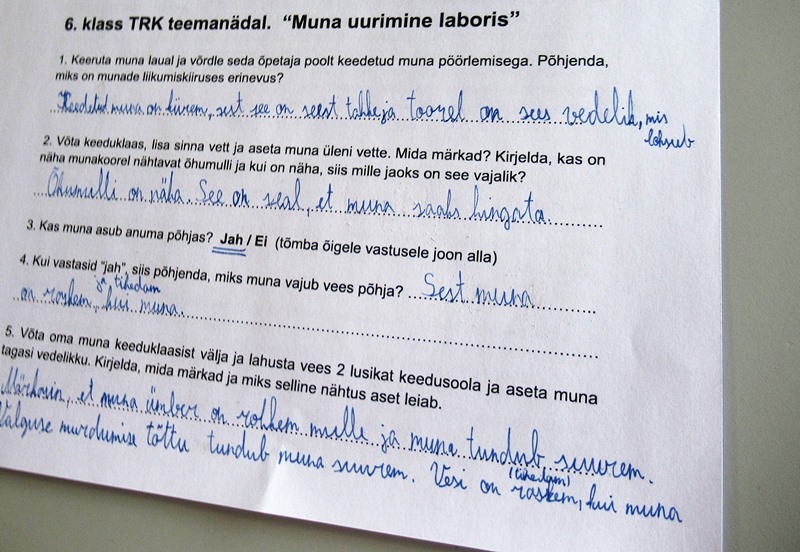 6. klass TRK teemanädal. "Muna uurimine laboris"
1. Keeruta muna laual ja võrdle seda õpetaja poolt keedetud muna pöörlemisega. Põhjenda,
miks on munade liikumiskiiruses erinevus?
Keedetud muna on kiirem, sest see on seest tahke ja toorel on sees vedelik, mis
lohseb
2. Võta keeduklaas, lisa sinna vett ja aseta muna üleni vette. Mida märkad? Kirjelda, kas on
näha munakoorel nähtavat õhumulli ja kui on näha, siis mille jaoks on see vajalik?
Õhumulli on näha. See on seal, et muna saaks hingata.
3. Kas muna asub anuma põhjas? Jah / Ei (tõmba õigele vastusele joon alla)
4. Kui vastasid "jah", siis põhjenda, miks muna vajub vees põhja? Sest muna
tihedam
on raskem, kui muna.
5. Võta oma muna keeduklaasist välja ja lahusta vees 2 lusikat keedusoola ja aseta muna
tagasi vedelikku. Kirjelda, mida märkad ja miks selline nähtus aset leiab.
Märkasin, et muna ümber on rohkem mulle ja muna tundub suurem.
Valguse murdumise tõttu tundub muna suurem. Vesi on raskem, kui muna
(tihedam)